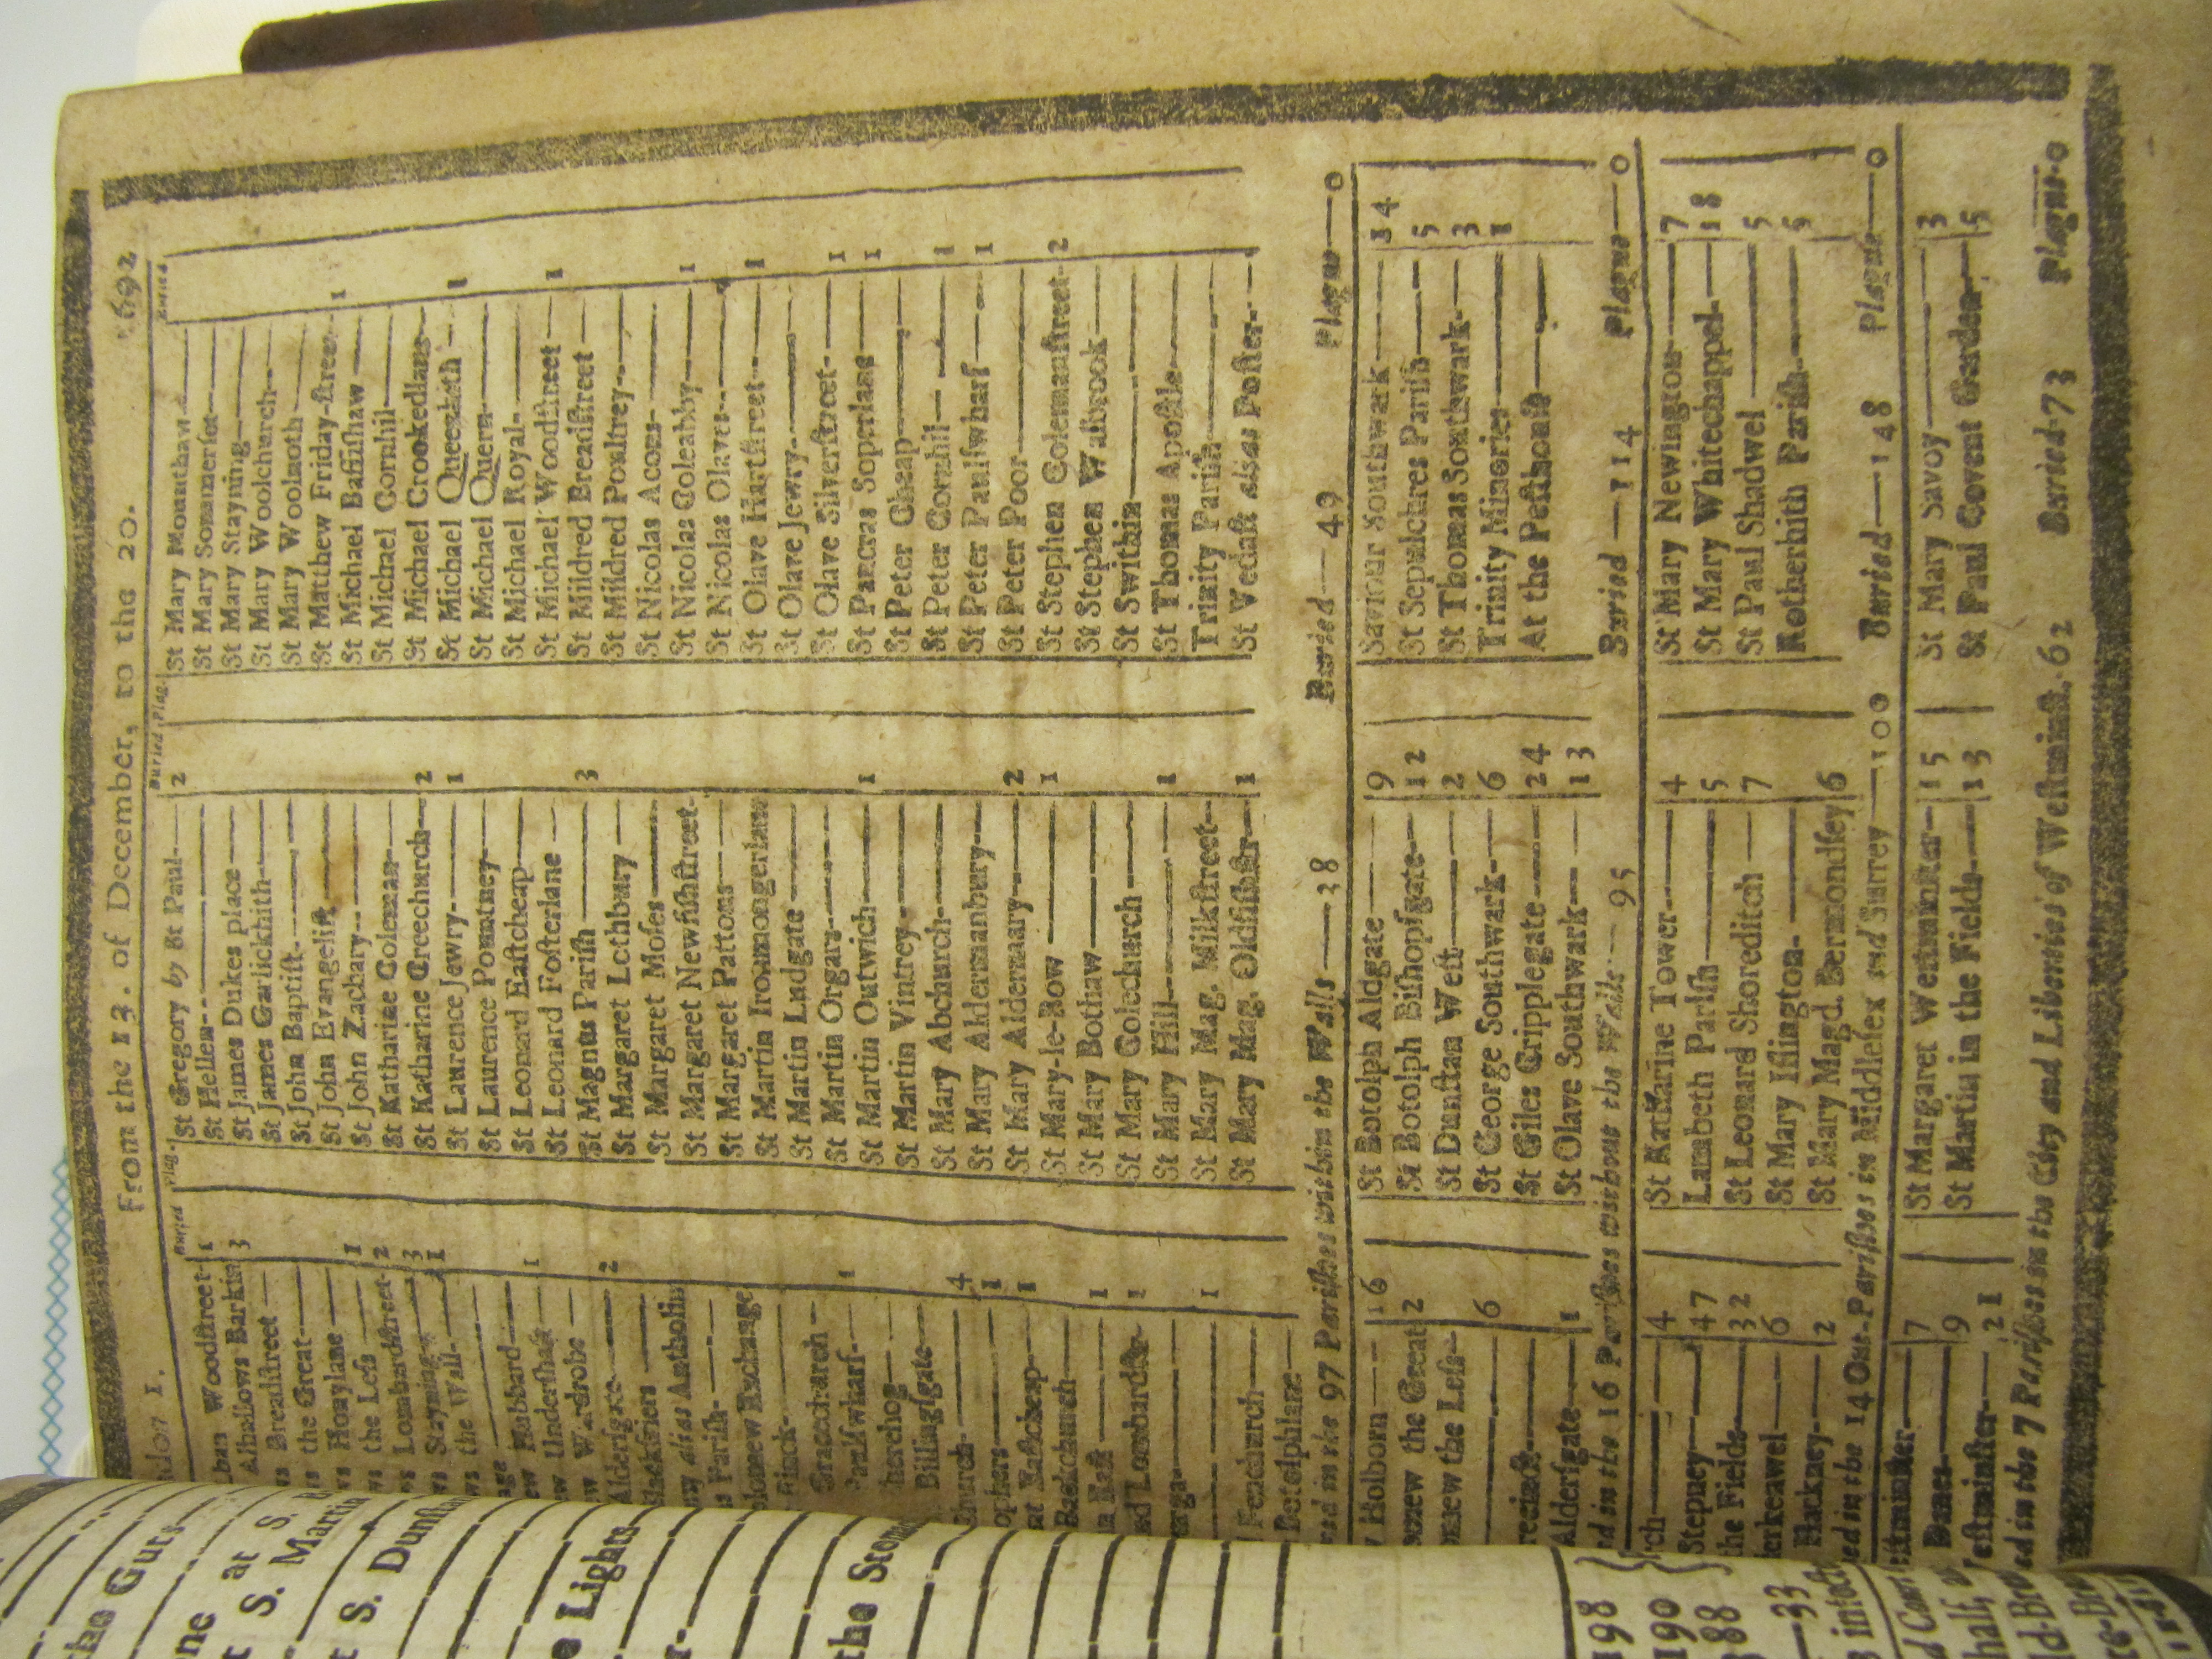 From the 13. of December, to the 20. 1692
Buried Plag. Buried Plag. Buried
Woodstreet- 1 St Gregory by St Paul 2 St Mary Mounthaw
Alhallows Barkin 3 St Hellen St Mary Sommerset
Breadstreet St James Dukes place St Mary Stayning
the Great St James Garlickhith St Mary Woolchurch
Honylane 1 St John Baptist St Mary Woolnoth
the Less 2 St John Evangelist St Matthew Friday-street 1
Lombardstreet 3 St John Zachary St Michael Bassishaw
Stayning 1 St Katharine Coleman St Michael Cornhil
the Wall St Katharine Creechurch 2 St Michael Crookedlane
St Laurence Jewry 1 St Michael Queenhith 1
Hubbard St Laurence Pountney St Michael Quern
Undershaft 1 St Leonard Eastcheap St Michael Royal
Wardrobe St Leonard Fosterlane St Michael Woodstreet 1
2 St Magnus Parish 3 St Mildred Breadstreet
St Margaret Lothbury St Mildred Poultrey
alias Antholin St Margaret Moses St Nicolas Acons
Parish St Margaret Newfishstreet St Nicolas Coleabby 1
Exchange St Margaret Pattons St Nicolas Olaves
Finck St Martin Ironmongerlane St Olave Hartstreet 1
Gracechurch St Martin Ludgate St Olave Jewry
1 St Martin Orgars St Olave Silverstreet 1
St Martin Outwich 1 St Pancras Soperlane 1
Billingsgate St Martin Vintrey St Peter Cheap
4 St Mary Abchurch St Peter Cornhil 1
1 St Mary Aldermanbury St Peter Paulswharf 1
Eastcheap 1 St Mary Aldermary 2 St Peter Poor
Backchurch St Mary-le-Bow 1 St Stephen Colemanstreet 2
1 St Mary Bothaw St Stephen Walbrook
1 St Mary Colechurch St Swithin
St Mary Hill 1 St Thomas Apostle
1 St Mary Mag. Milkstreet Trinity Parish
Fenchurch St Mary Mag. Oldfishstr 1 St Vedast alias Foster
in the 97 Parishes within the Walls 38 Buried 49 Plague 0
Holborn 16 St Botolph Aldgate 9 Saviour Southwark 14
the Great 2 St Botolph Bishopsgate 12 St Sepulchres Parish 5
the Less St Dunstan West 2 St Thomas Southwark 3
6 St George Southwark 6 Trinity Minories 1
St Giles Cripplegate 24 At the Pesthouse
Aldersgate 1 St Olave Southwark 13
in the 16 Parishes without the Walls 95 Buried 114 Plague 0
4 St Katharine Tower 4 St Mary Newington 7
Stepney 47 Lambeth Parish 5 St Mary Whitechappel 18
the Fields 32 St Leonard Shoreditch 7 St Paul Shadwel 5
6 St Mary Islington Rotherhith Parish 5
Hackney 2 St Mary Magd. Bermondsey 6
in the 14 Out-Parishes in Middlesex and Surrey 100 Buried 148 Plague 0
7 St Margaret Westminster 15 St Mary Savoy 3
Danes 9 St Martin in the Fields 13 St Paul Covent Garden 5
21
in the 7 Parishes in the City and Liberties of Westminst. 62 Buried 73 Plague 0
the Guts
at S.
S. Martin
S. Dunstan
Lights
198
190
88
33